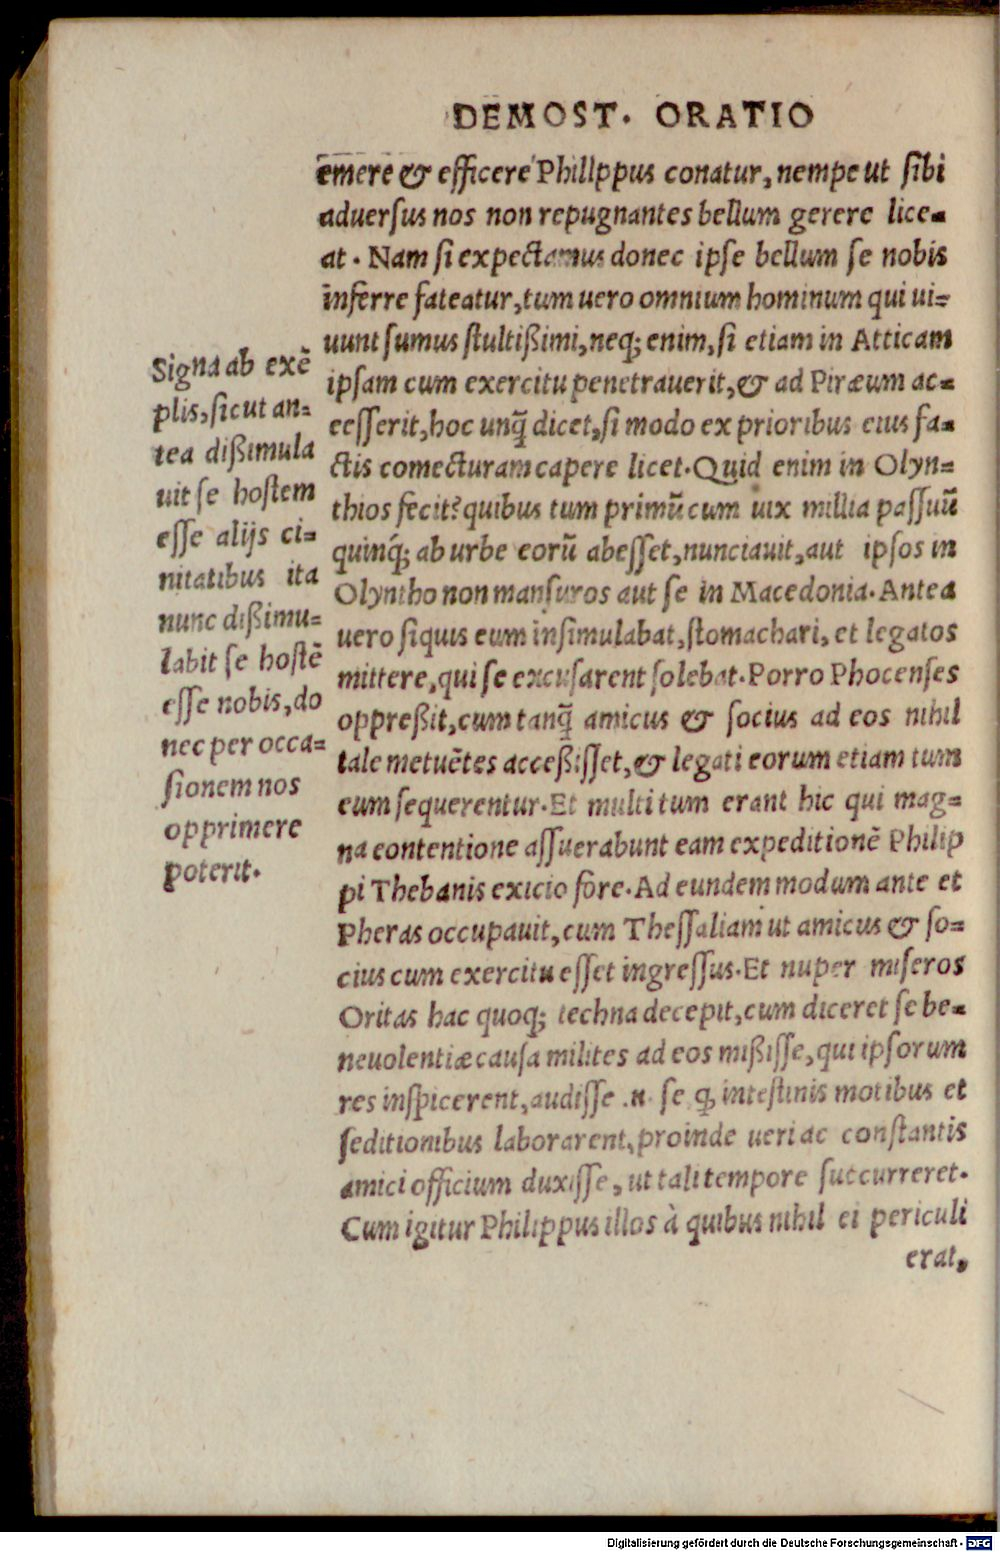 DEMOST. ORATIO
emere & efficere Philippus conatur, nempe ut sibi
aduersus nos non repugnantes bellum gerere lice-
at. Nam si expectamus donec ipse bellum se nobis
inferre fateatur, tum uero omnium hominum qui ui-
uunt sumus stultißimi, neq; enim, si etiam in Atticam
ipsam cum exercitu penetrauerit, & ad Piræum ac-
cesserit, hoc unq̃ dicet, si modo ex prioribus eius fa-
ctis coniecturam capere licet. Quid enim in Olyn-
thios fecit? quibus tum primũ cum uix millia passuũ
quinq; ab urbe eorũ abesset, nunciauit, aut ipsos in
Olyntho non mansuros aut se in Macedonia. Antea
uero siquis eum insimulabat, stomachari, et legatos
mittere, qui se excusarent solebat. Porro Phocenses
oppreßit, cum tanq̃ amicus & socius ad eos nihil
tale metuẽtes acceßisset, & legati eorum etiam tum
eum sequerentur. Et multi tum erant hic qui mag-
na contentione assuerabunt eam expeditionẽ Philip
pi Thebanis exicio fore. Ad eundem modum ante et
Pheras occupauit, cum Thessaliam ut amicus & so-
cius cum exercitu esset ingressus. Et nuper miseros
Oritas hac quoq; techna decepit, cum diceret se be-
neuolentiæ causa milites ad eos mißisse, qui ipsorum
res inspicerent, audisse .n. se q; intestinis motibus et
seditionibus laborarent, proinde ueri ac constantis
amici officium duxisse, ut tali tempore succurreret.
Cum igitur Philippus illos à quibus nihil ei periculi
erat,
Signa ab exẽ
plis, sicut an-
tea dißimula
uit se hostem
esse alijs ci-
uitatibus ita
nunc dißimu-
labit se hostẽ
esse nobis, do
nec per occa-
sionem nos
opprimere
poterit.
Digitalisierung gefördert durch die Deutsche Forschungsgemeinschaft - DFG